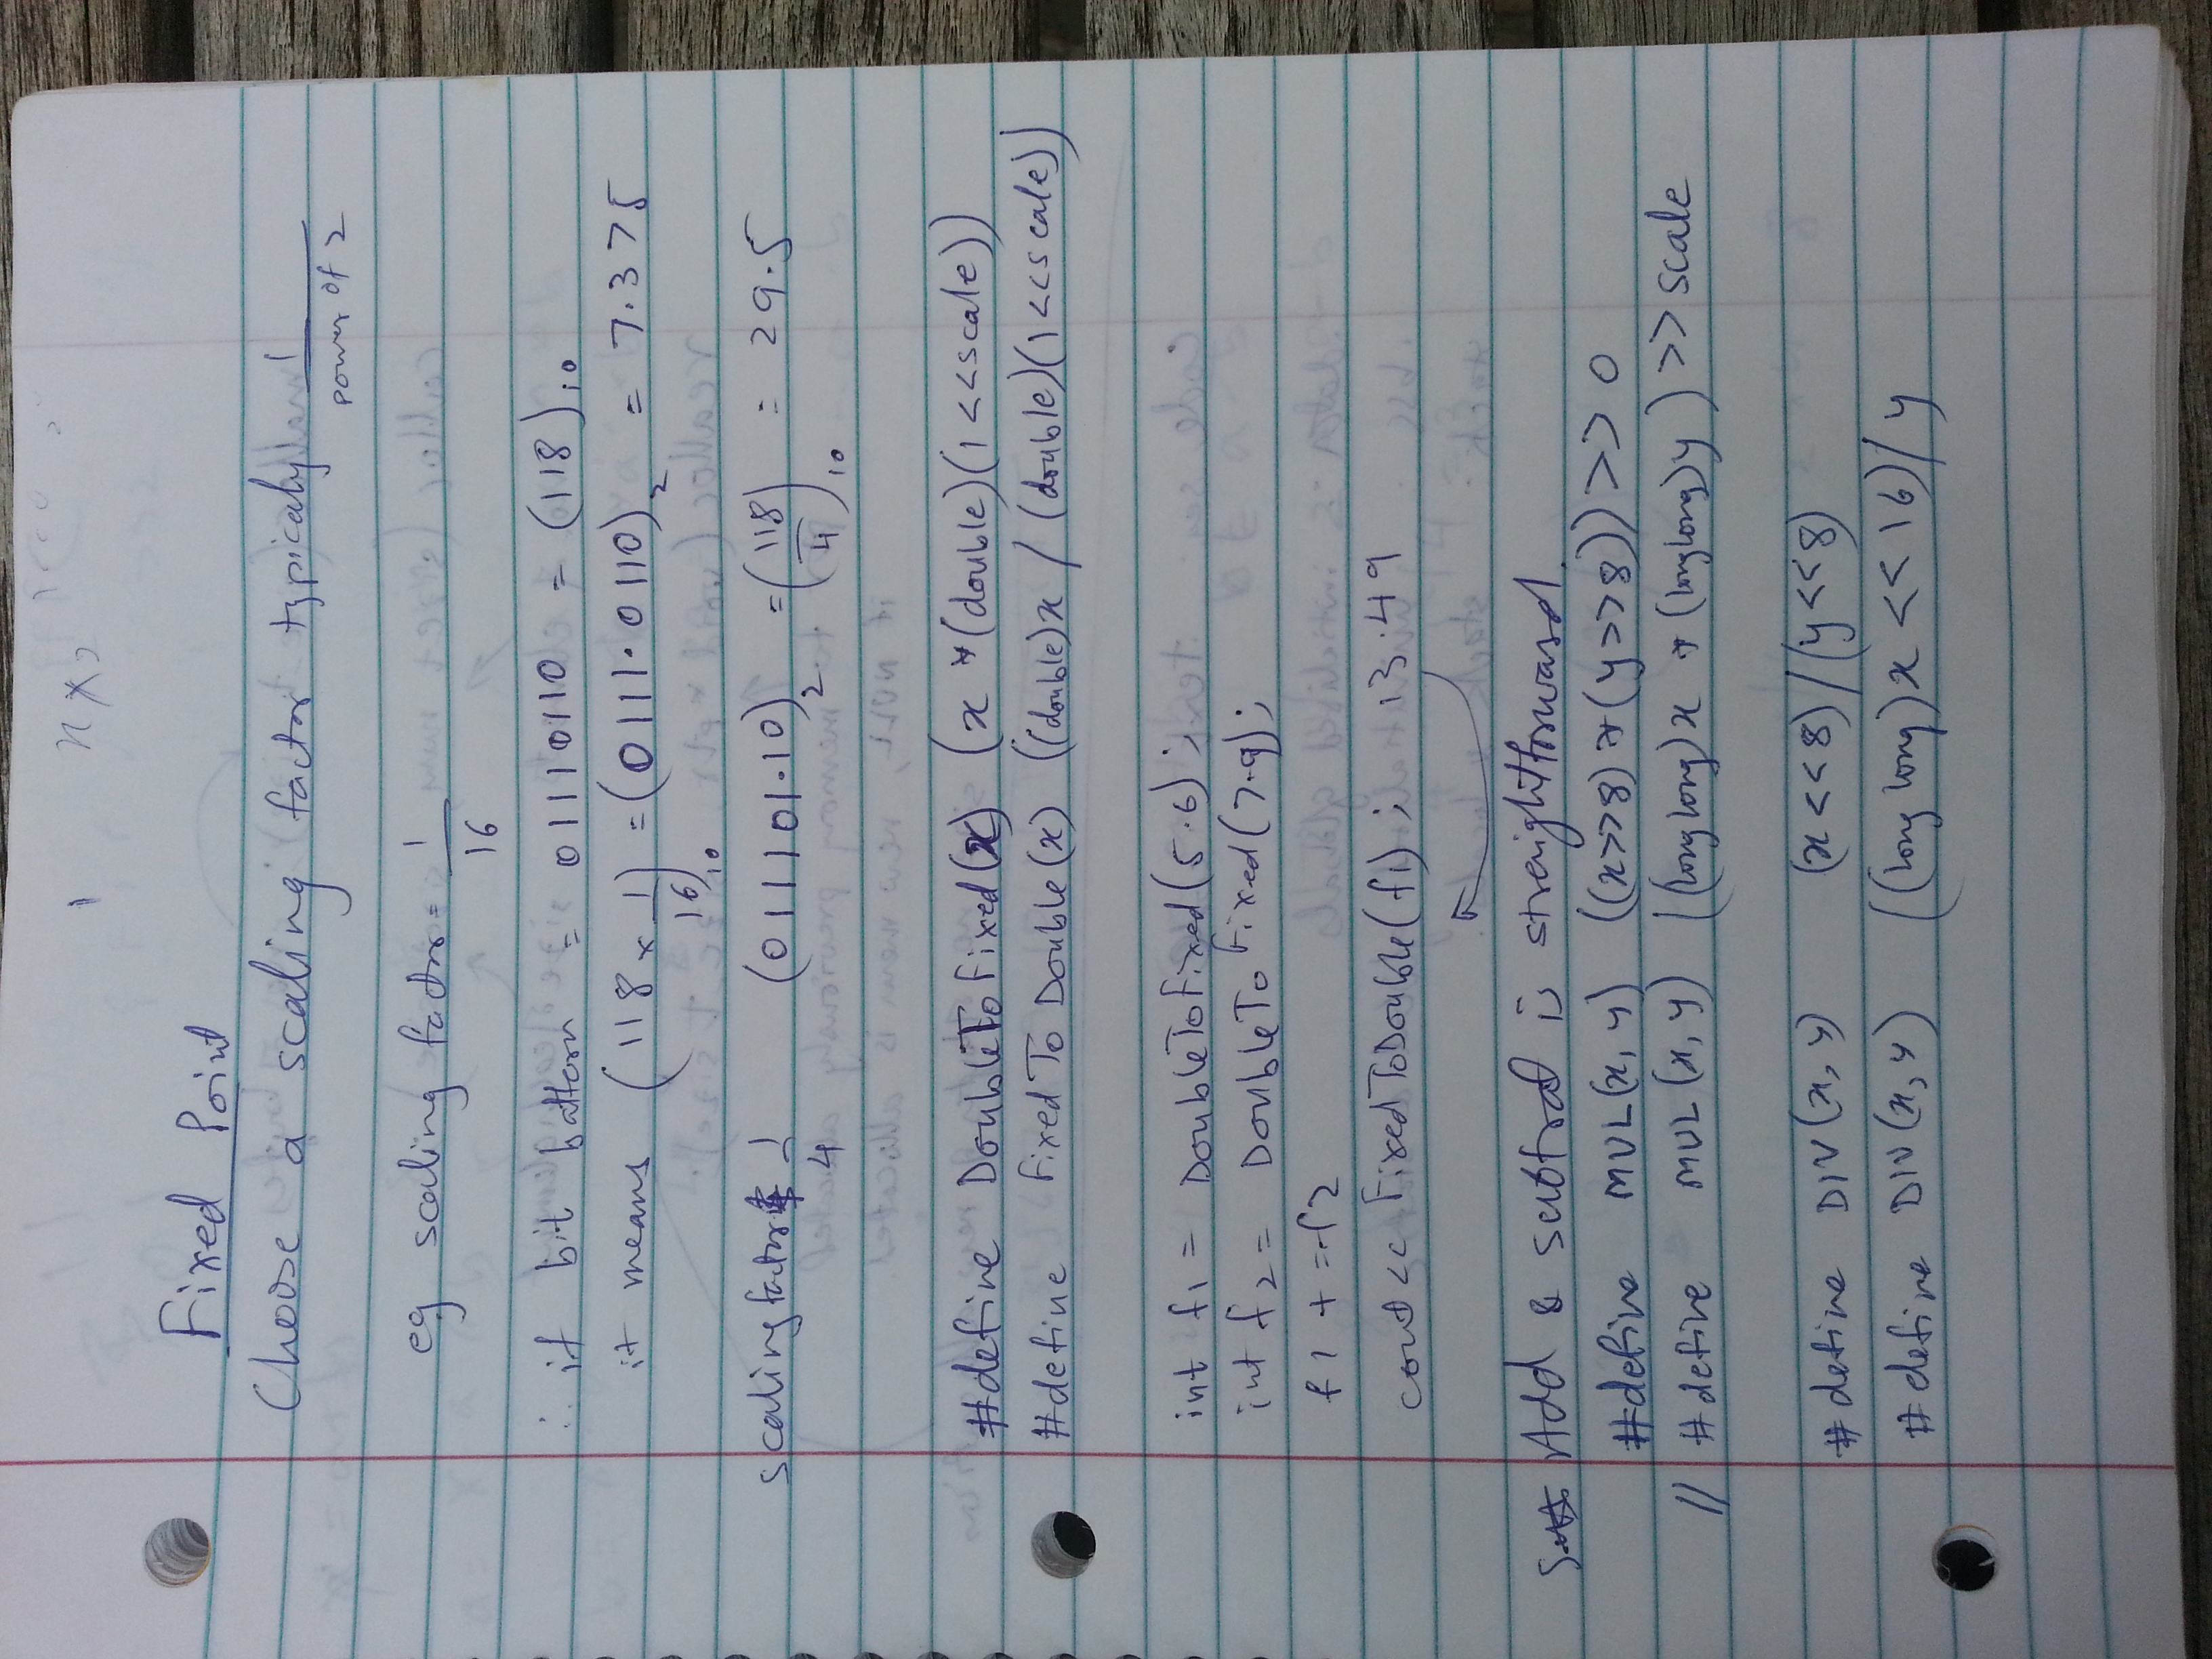 Fixed Point
Choose a scaling factor typicaly 1/power of 2
eg scaling factor = 1/16
∴ if bit battern = 01110110 = (118)10
it means (118 x 1/16)10 = (0111.0110)2 = 7.375
scaling factor 1/4 (011101.10)2 = (118/4)10 = 29.5
#define DoubleToFixed(x) (x *(double)(1<<scale))
#define FixedToDouble(x) ((double)x / (double)(1<<scale))
int f1 = DoubleToFixed(5.6);
int f2 = DoubleToFixed(7.9);
f1 += f2
cout << FixedToDouble(f1); 13.49
Add & subtract is streightforward.
#define MUL(x, y) ((x>>8) *(y>>8)) >> 0
// #define MUL(x, y) ((long long)x * (long long)y) >> scale
#define DIV(x, y) (x<<8)/(y<<8)
#define DIV(x, y) ((long long)x << 16)/y